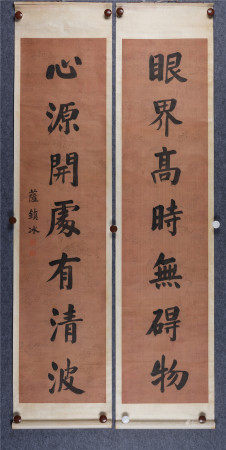 眼界高時無碍物
心源開處有清波
薩鎮冰